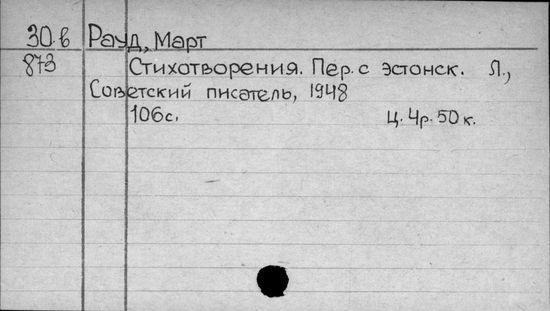 30.в Рауд, Март
873 Стихотворения. Пер. с эстонск. Л.,
Советский писатель, 1948
106с. Ц. 4р. 50 к.